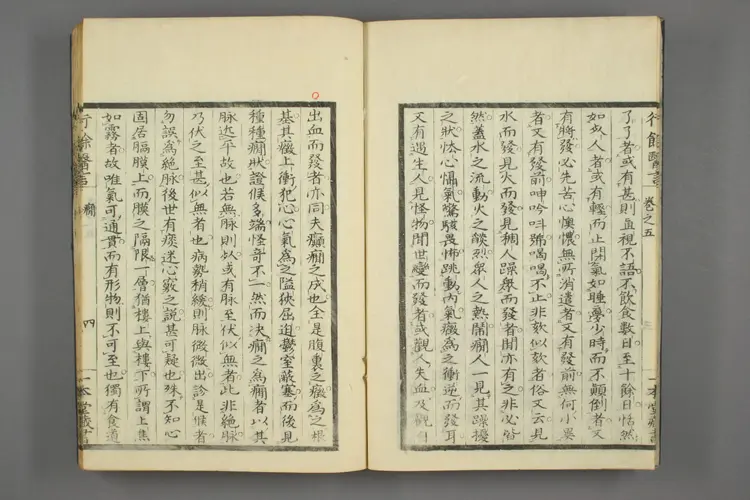 行餘醫言 卷之五 一本堂藏書
了了者或有甚則直視不語不飲食數日至十餘日恬然
如常人者或有輕而止閉氣如睡憂少時而不顛倒者又
有將發必先苦心懊憹無所消遣者又有發前無何小異
者又有發前呻吟叫號喝喝不止非欬似欬者俗又云見
水而發見火而發見稠人躁衆而發者間亦有之非必皆
然蓋水之流動火之燄烈衆人之熱鬧癇人一見其躁擾
之狀怵心懾氣驚駭畏怖跳動內氣癥爲之衝逆而發耳
又有遇生人見怪物聞世變而發者或觀人失血及觀自
出血而發者亦同夫癲癇之成也全是腹裏之癥爲之根
基其癥上衝犯心心氣爲之隘狹屈迫鬱窒蔽塞而後見
種種癇狀證候多端怪奇不一然而決癇之爲癇者以其
脉近平故也若無脉則以或有脉至伏似無者此非絕脉
乃伏之至甚似無者也病勢稍緩則脉微微出診是候者
勿誤爲絕脉後世有痰迷心竅之說甚可疑也殊不知心
固居膈膜上而膜之隔限一層猶樓上與樓下所謂上焦
如霧者故唯氣可通貫而有形物則不可至也獨有食道
行餘醫言 癇 四 一本堂藏書